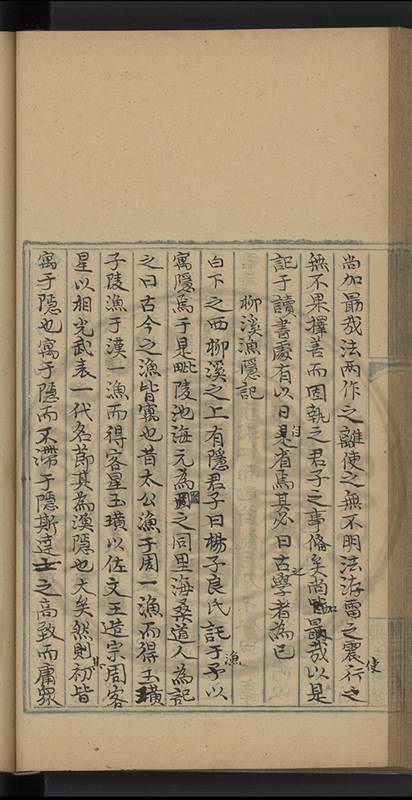 尚加勗哉法兩作之離使之無不明法洊雷之震行之使
無不果擇善而固執之君子之事俻矣尚加勗哉以是
記于讀書處有以日自省焉其必曰古之學者為己
柳溪漁隱記
白下之西柳溪之上有隱君子曰楊子良氏託于漁以
寓隱焉于是毗陵池海元為圖之同里海桑道人為記
之曰古今之漁皆寓也昔太公漁于周一漁而得玉璜
子陵漁于漢一漁而得客星玉璜以佐文王造宗周客
星以相光武表一代名節其為漁隱也大矣然則其初皆
寓于隱也寓于隱而不滯于隱斯達士之高致而庸衆